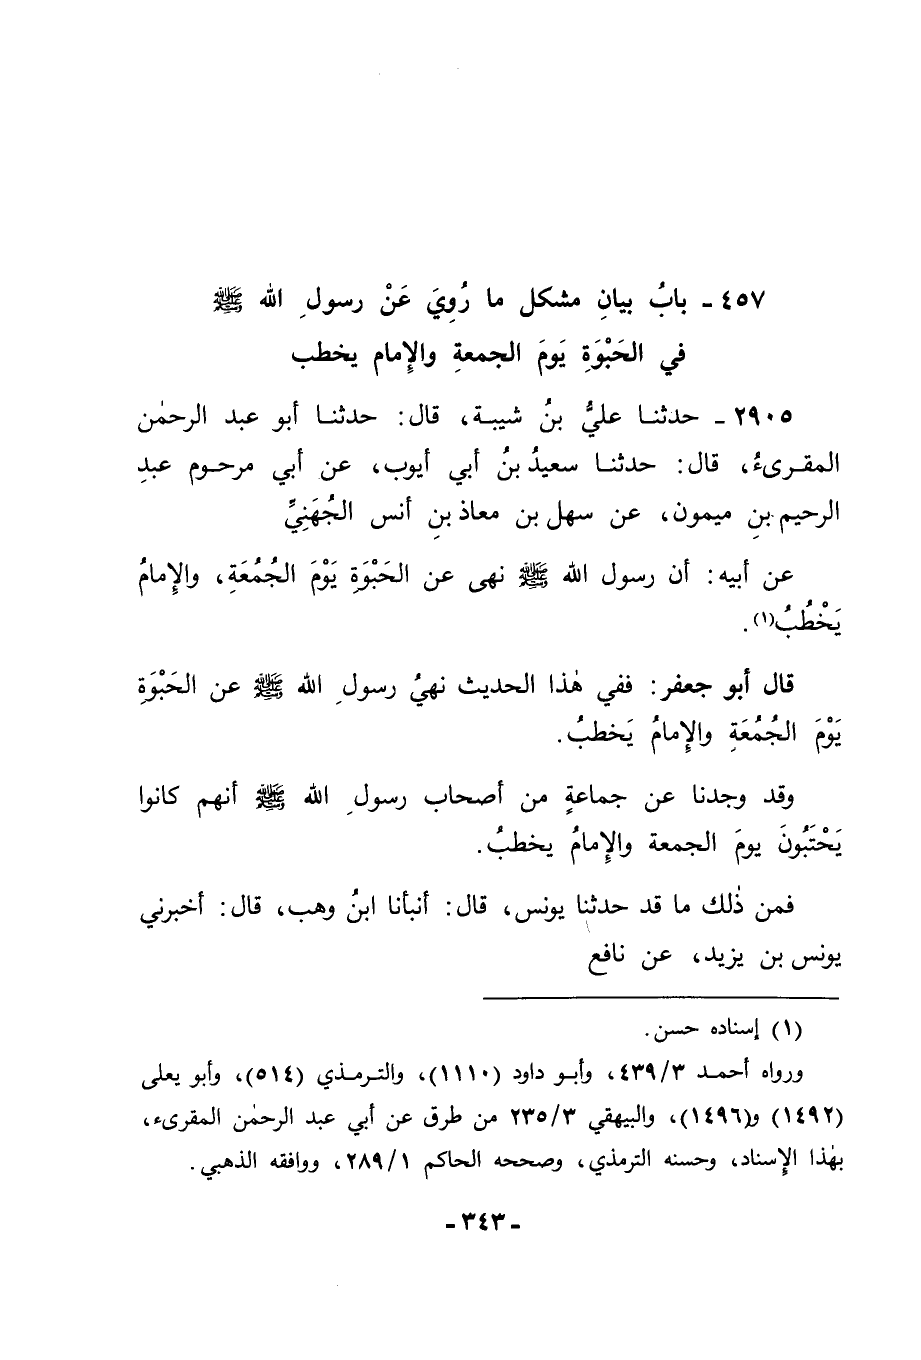 ٤٥٧ ـ بابُ بيانِ مشكل ما رُوِيَ عَنْ رسولِ الله ﷺ
في الحَبْوَةِ يَومَ الجمعةِ والإِمام يخطب
٢٩٠٥ ـ حدثنا عليُّ بنُ شيبة، قال: حدثنا أبو عبد الرحمٰن
المقرىءُ، قال: حدثنا سعيدُ بنُ أبي أيوب، عن أبي مرحوم عبدِ
الرحيم بنِ ميمون، عن سهل بن معاذ بنِ أنس الجُهَنِيِّ
عن أبيه: أن رسول الله ﷺ نهى عن الحَبْوَةِ يَوْمَ الجُمُعَةِ، والإِمامُ
يَخْطُبُ(١).
قال أبو جعفر: ففي هٰذا الحديث نهيُ رسولِ الله ﷺ عن الحَبْوَةِ
يَوْمَ الجُمُعَةِ والإِمامُ يَخطبُ.
وقد وجدنا عن جماعةٍ من أصحاب رسولِ الله ﷺ أنهم كانوا
يَحْتَبُونَ يومَ الجمعة والإِمامُ يخطبُ.
فمن ذٰلك ما قد حدثنا يونس، قال: أنبأنا ابنُ وهب، قال: أخبرني
يونس بن يزيد، عن نافع
(١) إسناده حسن.
ورواه أحمد ٤٣٩/٣، وأبو داود (١١١٠)، والترمذي (٥١٤)، وأبو يعلى
(١٤٩٢) و(١٤٩٦)، والبيهقي ٢٣٥/٣ من طرق عن أبي عبد الرحمٰن المقرىء،
بهٰذا الإِسناد، وحسنه الترمذي، وصححه الحاكم ٢٨٩/١، ووافقه الذهبي.
ـ ٣٤٣ ـ